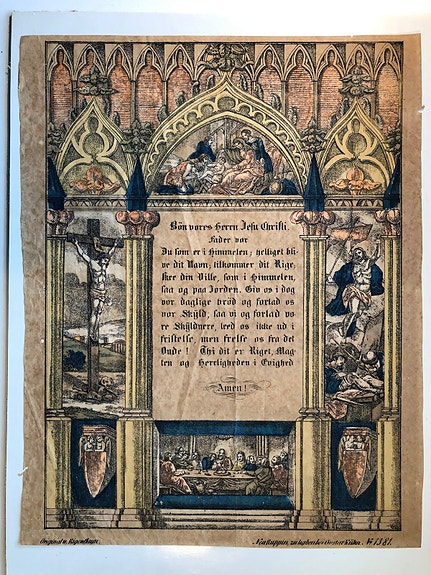 Bön vores Herrn Jesu Christi.
Fader vor
Du som er i Himmelen; helliget bli-
ve dit Navn, tilkommer dit Rige,
skee din Ville, som i Himmelen,
saa og paa Jorden. Giv os i dog
vor daglige bröd og forlad os
vor Skyld, saa vi og forlad vo
re Skyldnere, leed os ikke ud i
fristelse, men frelse os fra det
Onde! Thi dit er Riget, Mag-
ten og Herligheden i Evighed
Amen!
Original u. Eigenthum.
Neu Ruppin, zu haben bei Gustav Kühn. No 1381.